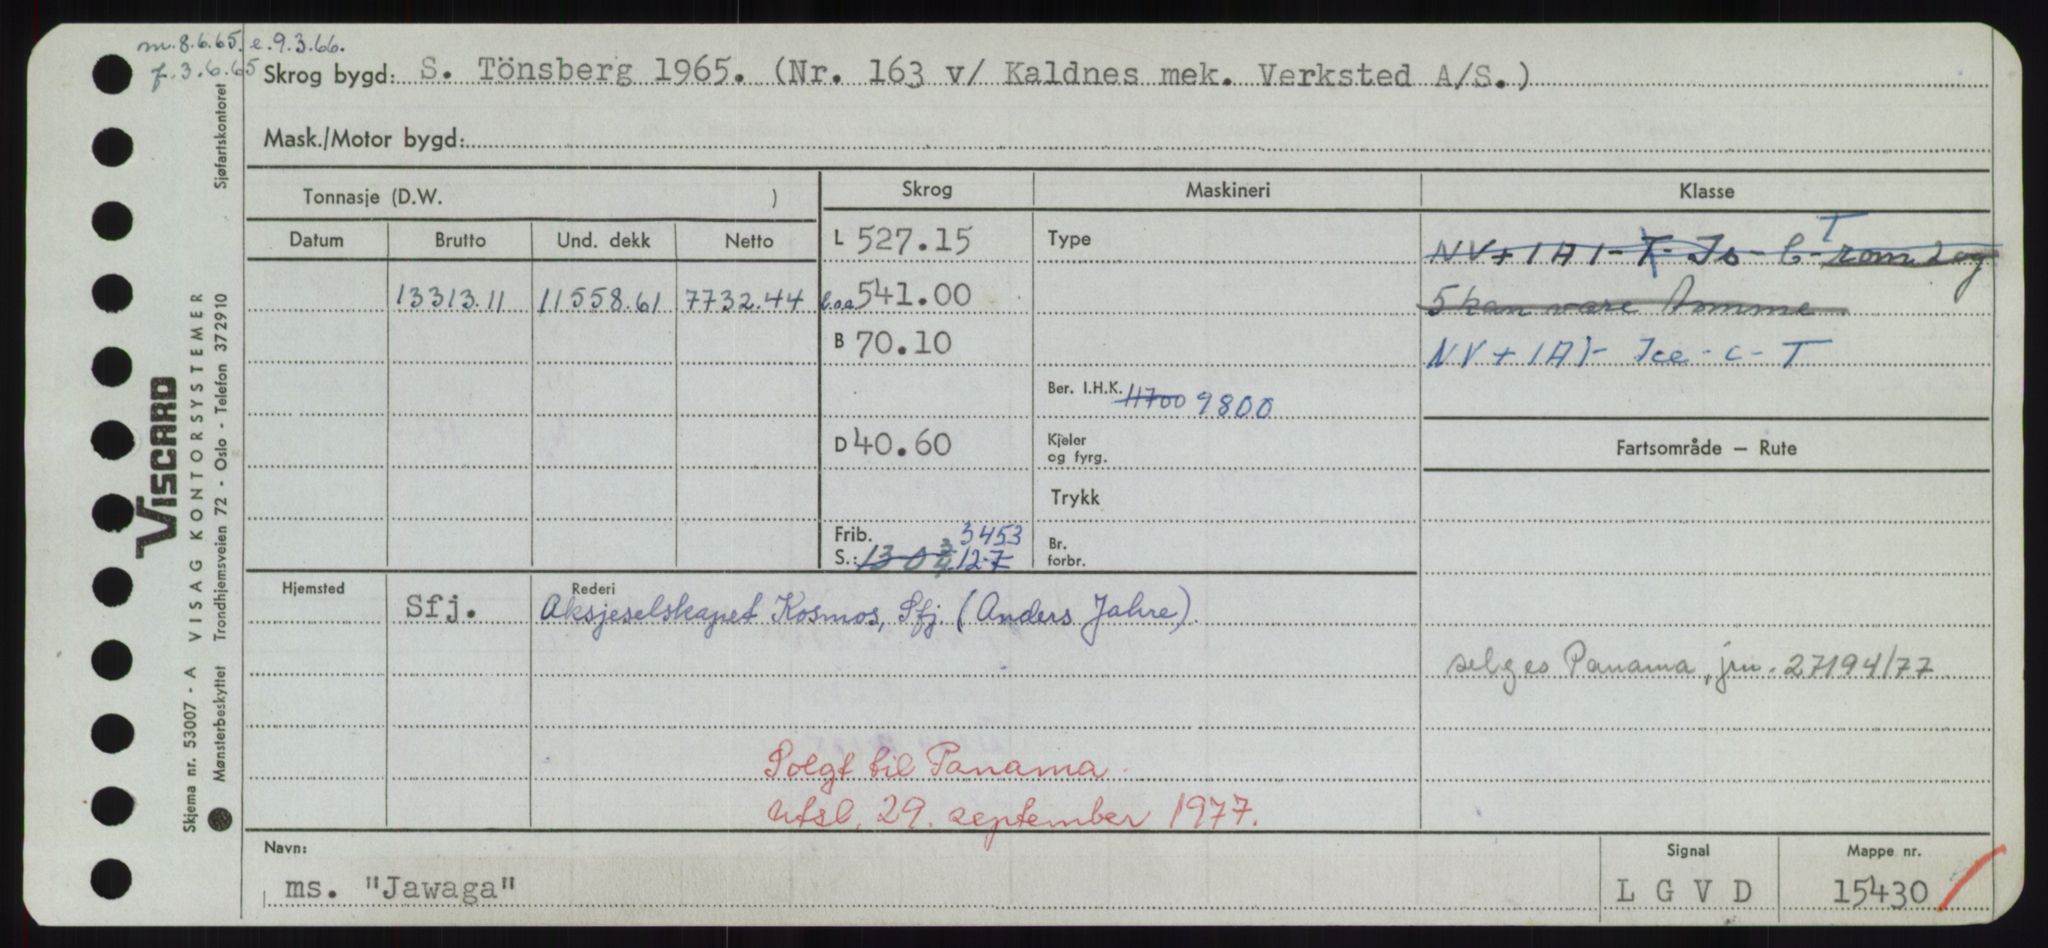 m. 8.6.65. e. 9.3.66.
f. 3.6.65
Skrog bygd: S. Tönsberg 1965. (Nr. 163 v/ Kaldnes mek. Verksted A/S.)
Mask./Motor bygd:
Tonnasje (D.W. )
Skrog
Maskineri
Klasse
Datum
Brutto
Und. dekk
Netto
L 527.15
Type
NV + 1A1 - T - Is - C - T rom 2 og
13313.11 11558.61 7732.44
l.oa 541.00
5 kan være tomme
B 70.10
NV + 1A1 - Ice - C - T
Ber. I.H.K. 11700 9800
D 40.60
Kjeler
og fyrg.
Fartsområde — Rute
Trykk
Frib. 3453
S.: 12-7
Br.
forbr.
Hjemsted
Sfj.
Rederi
Aksjeselskapet Kosmos, Sfj. (Anders Jahre).
selges Panama, jnr. 27194/77
Solgt til Panama.
Utsl. 29. september 1977.
Navn:
ms. "Jawaga"
Signal
L G V D
Mappe nr.
15430
Skjema nr. 53007 - A VISAG KONTORSYSTEMER
VISCARD
Mønsterbeskyttet Trondhjemsveien 72 - Oslo - Telefon 372910 Sjøfartskontoret